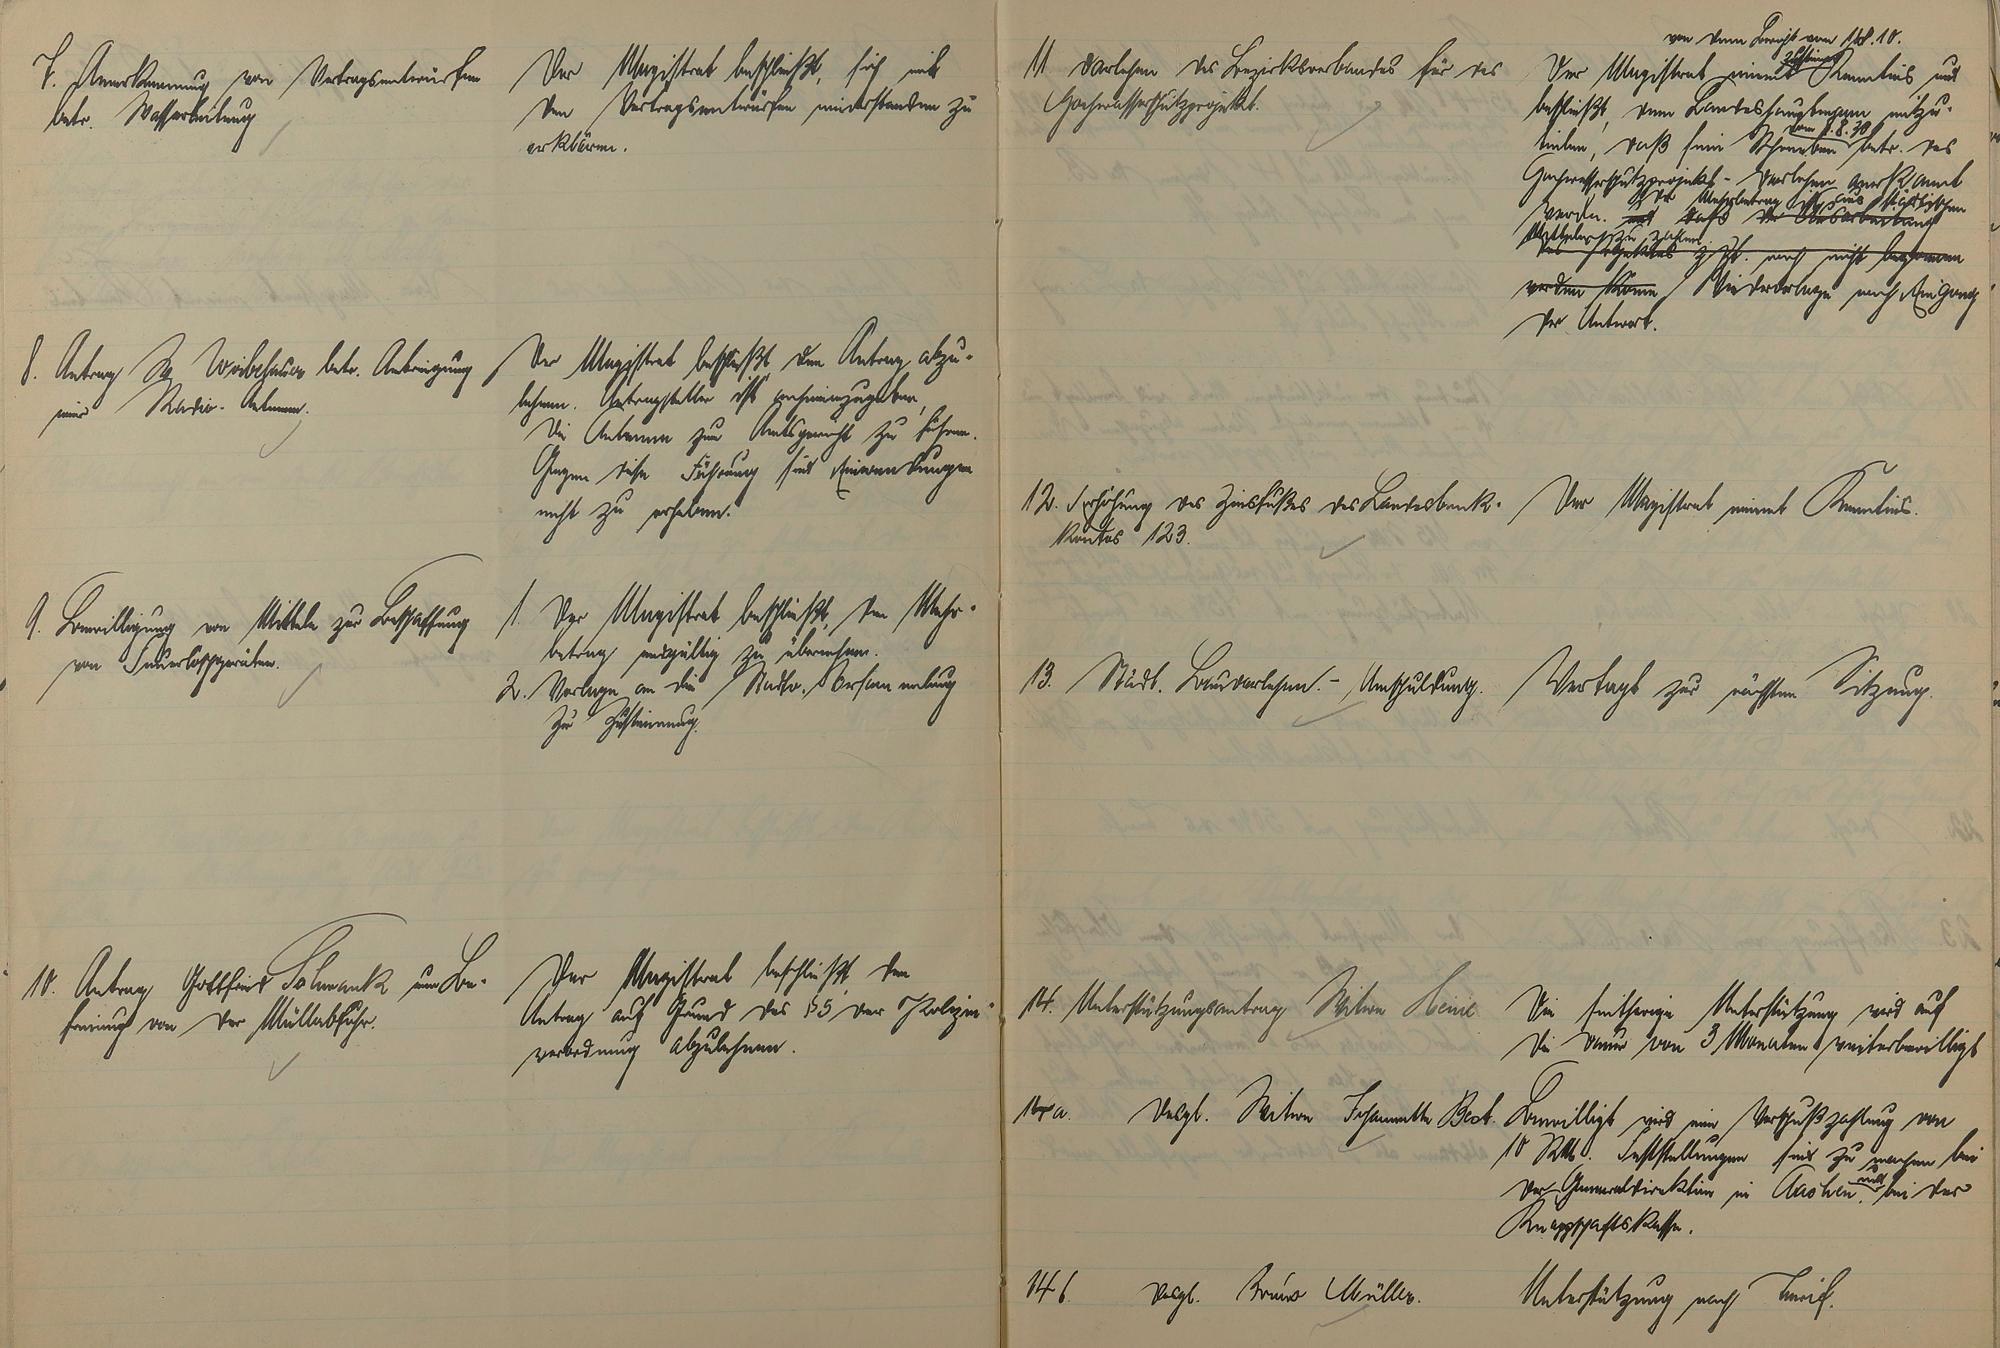 7. Anerkennung von Vertragsentwürfen
betr. Wasserleitung
Der Magistrat beschließt, sich mit
den Vertragsentwürfen einverstanden zu
erklären.
8. Antrag betr. Anbringung
einer Radio-Antenne.
Der Magistrat beschließt den Antrag abzu-
lehnen. Antragsteller ist anheimzugeben,
die Antenne zum Amtsgericht zu führen.
Gegen diese Führung sind Einwendungen
nicht zu erheben.
9. Bewilligung von Mitteln zur Beschaffung
von Feuerlöschgeräten.
1. Der Magistrat beschließt, den Mehr-
betrag endgültig zu übernehmen.
2. Vorlage an die Stadtv. Versammlung
zur Zustimmung.
10. Antrag Gottfried um Be-
freiung von der Müllabfuhr.
Der Magistrat beschließt, den
Antrag auf Grund des § 5 der Polizei-
verordnung abzulehnen.
11 Darlehen des Bezirksverbandes für das
Hochwasserschutzprojekt.
von dem Bericht vom
zustimmend
Der Magistrat nimmt Kenntnis und
beschließt, dem Landeshauptmann mitzu-
vom 8.8.30
teilen, daß sein Schreiben betr. das
Hochwasserschutzprojekt-Darlehen anerkannt
der Mehrbetrag ist aus städtischen
werde. und daß der Ausarbeitung
Mitteln zu zahlen.
des Projektes z. Zt. noch nicht begonnen
werden könne. Wiedervorlage nach Eingang
der Antwort.
12. Erhöhung des Zinsfußes des Landesbank-
kontos 123.
Der Magistrat nimmt Kenntnis.
13. Städt. Baudarlehen. - Umschuldung.
Vertagt zur nächsten Sitzung.
14. Unterstützungsantrag Witwe Heine
Die seitherige Unterstützung wird auf
die Dauer von 3 Monaten weiterbewilligt
14a. Desgl. Witwe Johannette Best.
Bewilligt wird eine Vorschußzahlung von
10 RM. Feststellungen sind zu machen bei
und
der Generaldirektion in Aachen bei der
Knappschaftskasse.
14 b Desgl. Bruno Müller.
Unterstützung nach Tarif.